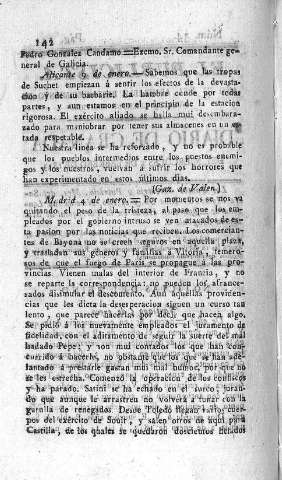 142
Pedro Gonzalez Candamo = Excmo. Sr. Comandante ge-
neral de Galicia.
Alicante 9 de enero. = Sabemos que las tropas
de Suchet empiezan á sentir los efectos de la devasta-
cion y de su barbarie. La hambre cunde por todas
partes, y aun estamos en el principio de la estacion
rigorosa. El exército aliado se halla muy desembara-
zado para maniobrar por tener sus almacenes en un es-
tado respetable.
Nuestra linea se ha reforzado, y no es probable
que los pueblos intermedios entre los puestos enemi-
gos y los nuestros, vuelvan á sufrir los horrores que han
experimentado en estos últimos dias.
(Gaz. de Valen.)
Madrid 4 de enero. = Por momentos se nos va
quitando el peso de la tristeza, al paso que los em-
pleados por el gobierno intruso se ven atacados de es-
ta pasion por las noticias que reciben. Los comercian-
tes de Bayona no se creen seguros en aquella plaza,
y trasladan sus géneros y familias á Vitoria, temero-
sos de que el fuego de Paris se propague á las pro-
vincias. Vienen malas del interior de Francia, y no
se reparte la correspondencia; no pueden los afrance-
sados disimular el descontento. Aun aquellas providen-
cias que les dicta la desesperacion siguen un curso tan
lento, que parece hacerlas por decir que hacen algo.
Se pidió á los nuevamente empleados el juramento de
fidelidad, con el aditamento de seguir la suerte del mal
hadado Pepe; y son muy contados los que han con-
currido á hacerlo, no obstante que los que se han ade-
lantado á prestarle gastan muy mal humor, por que no
se les estreña. Comenzó la operacion de los
y ha parado. Satini se ha echado en el surco, juran-
do que aunque le arrastren no volverá á torar con la
gurulla de renegados. Desde Toledo llegan varios cuer-
pos del exército de Soult, y salen otros de aquí para
Castilla, de los quales se quedaron doscientos helados